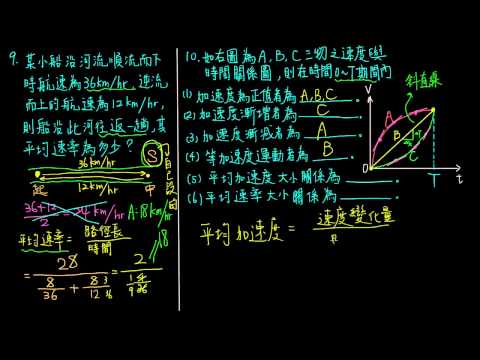 9. 某小船沿河流順流而下
時航速為36km/hr, 逆流
而上的航速為12km/hr,
則船沿此河往返一趟,其
平均速率為多少?
S
自己設的
36km/hr
起 中
12km/hr
36+12/2 = 24 km/hr A=18km/hr
平均速率 = 路徑長/時間
= 2S / (S/36 + S/12) = 2 / (4/36) = 18
10. 如右圖為A,B,C三物之速度與
時間關係圖,則在時間0~T期間內
(1) 加速度為正值者為 A,B,C .
(2) 加速度漸增者為 C .
(3) 加速度漸減者為 A .
(4) 等加速度運動者為 B .
(5) 平均加速度大小關係為 .
(6) 平均速率大小關係為 .
斜直線
V
A
B
C
0
T
t
平均加速度 = 速度變化量